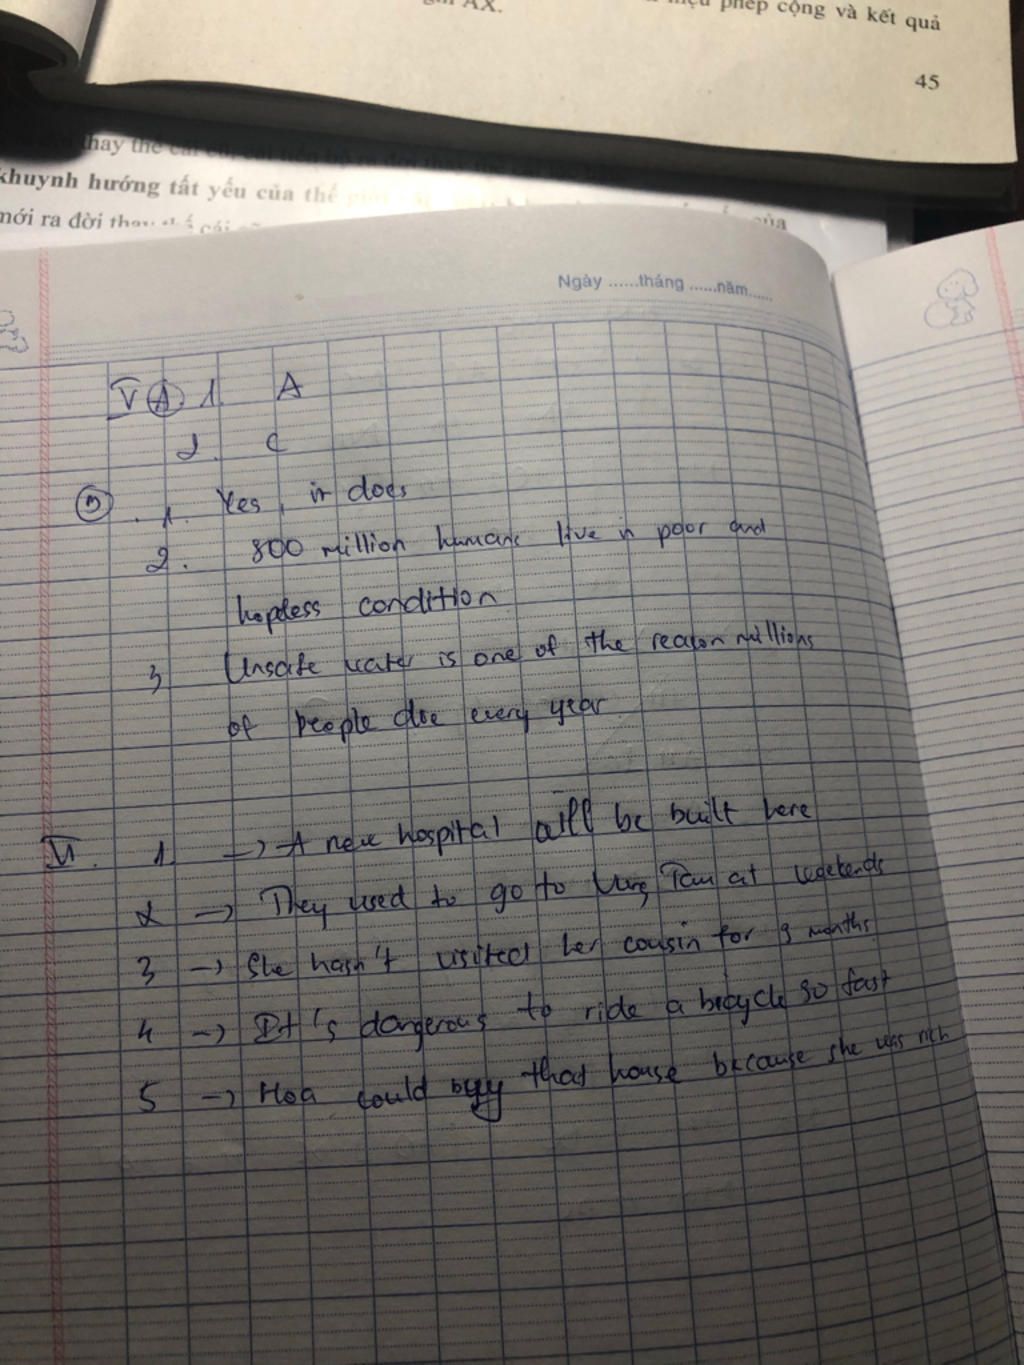 AX.
phép cộng và kết quả
45
thay thế
khuynh hướng tất yếu của thế
mới ra đời thay
của
Ngày ......tháng ......năm......
V A 1. A
2. C
B 1. Yes, it does
2. 800 million humans live in poor and
hopeless condition
3 Unsafe water is one of the reason millions
of people die every year
VI. 1. → A new hospital will be built here
2 → They used to go to Vung Tau at weekends
3 → She hasn't visited her cousin for 3 months
4 → It's dangerous to ride a bicycle so fast
5 → Hoa could buy that house because she was rich